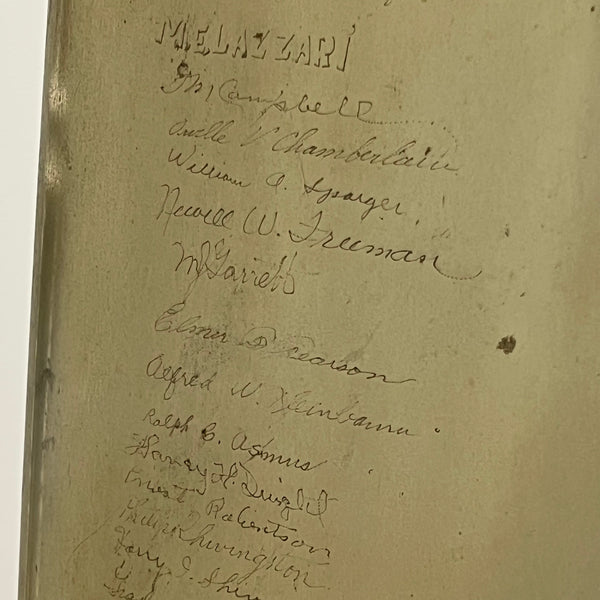 M.E. LAZZARI
Campbell
Orville V Chamberlain
William A. Sparger
Newell W. Freeman
MJ Garrett
Elmer Pearson
Alfred N. Steinbaum
Ralph C. Asmus
Harvey H.
Ernest Robertson
Philip Livingston
E. Shin